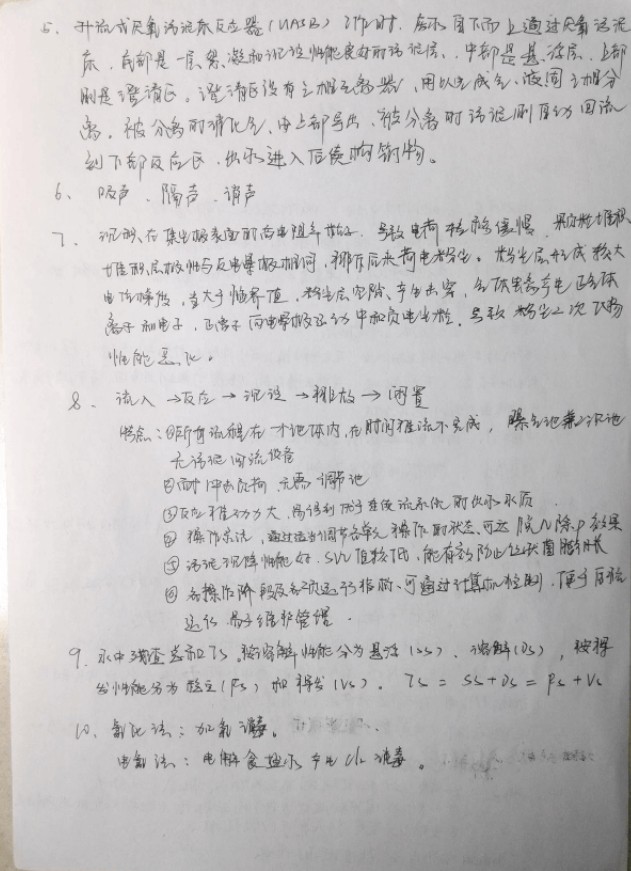 5、升流式厌氧污泥床反应器(UASB)工作时,废水自下而上通过厌氧污泥
床,底部是一层絮凝和沉淀性能良好的污泥层,中部是悬浮层,上部
则是澄清区。澄清区设有三相分离器,用以完成气、液、固三相分
离。被分离的消化气由上部导出,被分离的污泥则自动回流
到下部反应区,出水进入后续构筑物。
6、吸声、隔声、消声
7、沉积在集尘极表面的高电阻率粒子,导致电荷释放缓慢,
堆积层极性与集尘极相同,排斥后来荷电粉尘。粉尘层形成较大
电位梯度,当大于临界值,粉尘层空隙产生击穿,气体电离产生正气体
离子和电子,正离子向电晕极运动中和负电尘粒,导致粉尘二次飞扬
性能恶化。
8、流入→反应→沉淀→排放→闲置
特点:①所有流程在一个池体内,在时间推流下完成,曝气池兼二次池
无污泥回流设备
②耐冲击负荷,无需调节池
③反应推动力大,易得到优于连续流系统的出水水质
④操作灵活,通过适当调节各单元操作的状态,可达脱N除P效果
⑤污泥沉降性能好,SVI值较低,能有效防止丝状菌膨胀
⑥各操作阶段及各项运行指标,可通过计算机控制,便于自控
运行,易于维护管理。
9、水中残渣总和Ts。按溶解性能分为悬浮(Ss)、溶解(Ds),按挥
发性能分为稳定(Fs)和挥发(Vs)。Ts = Ss + Ds = Fs + Vs
10、氯化法:加氯消毒。
电氯法:电解食盐水产生Cl₂消毒。